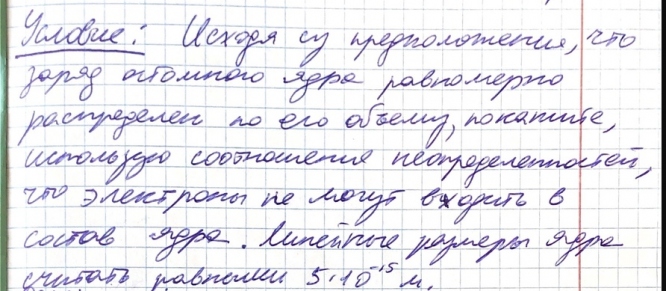 Условие: Исходя из предположения, что
заряд атомного ядра равномерно
распределен по его объему, покажите,
используя соотношения неопределенностей,
что электроны не могут входить в
состав ядра. Линейные размеры ядра
считать равными 5·10⁻¹⁵ м.